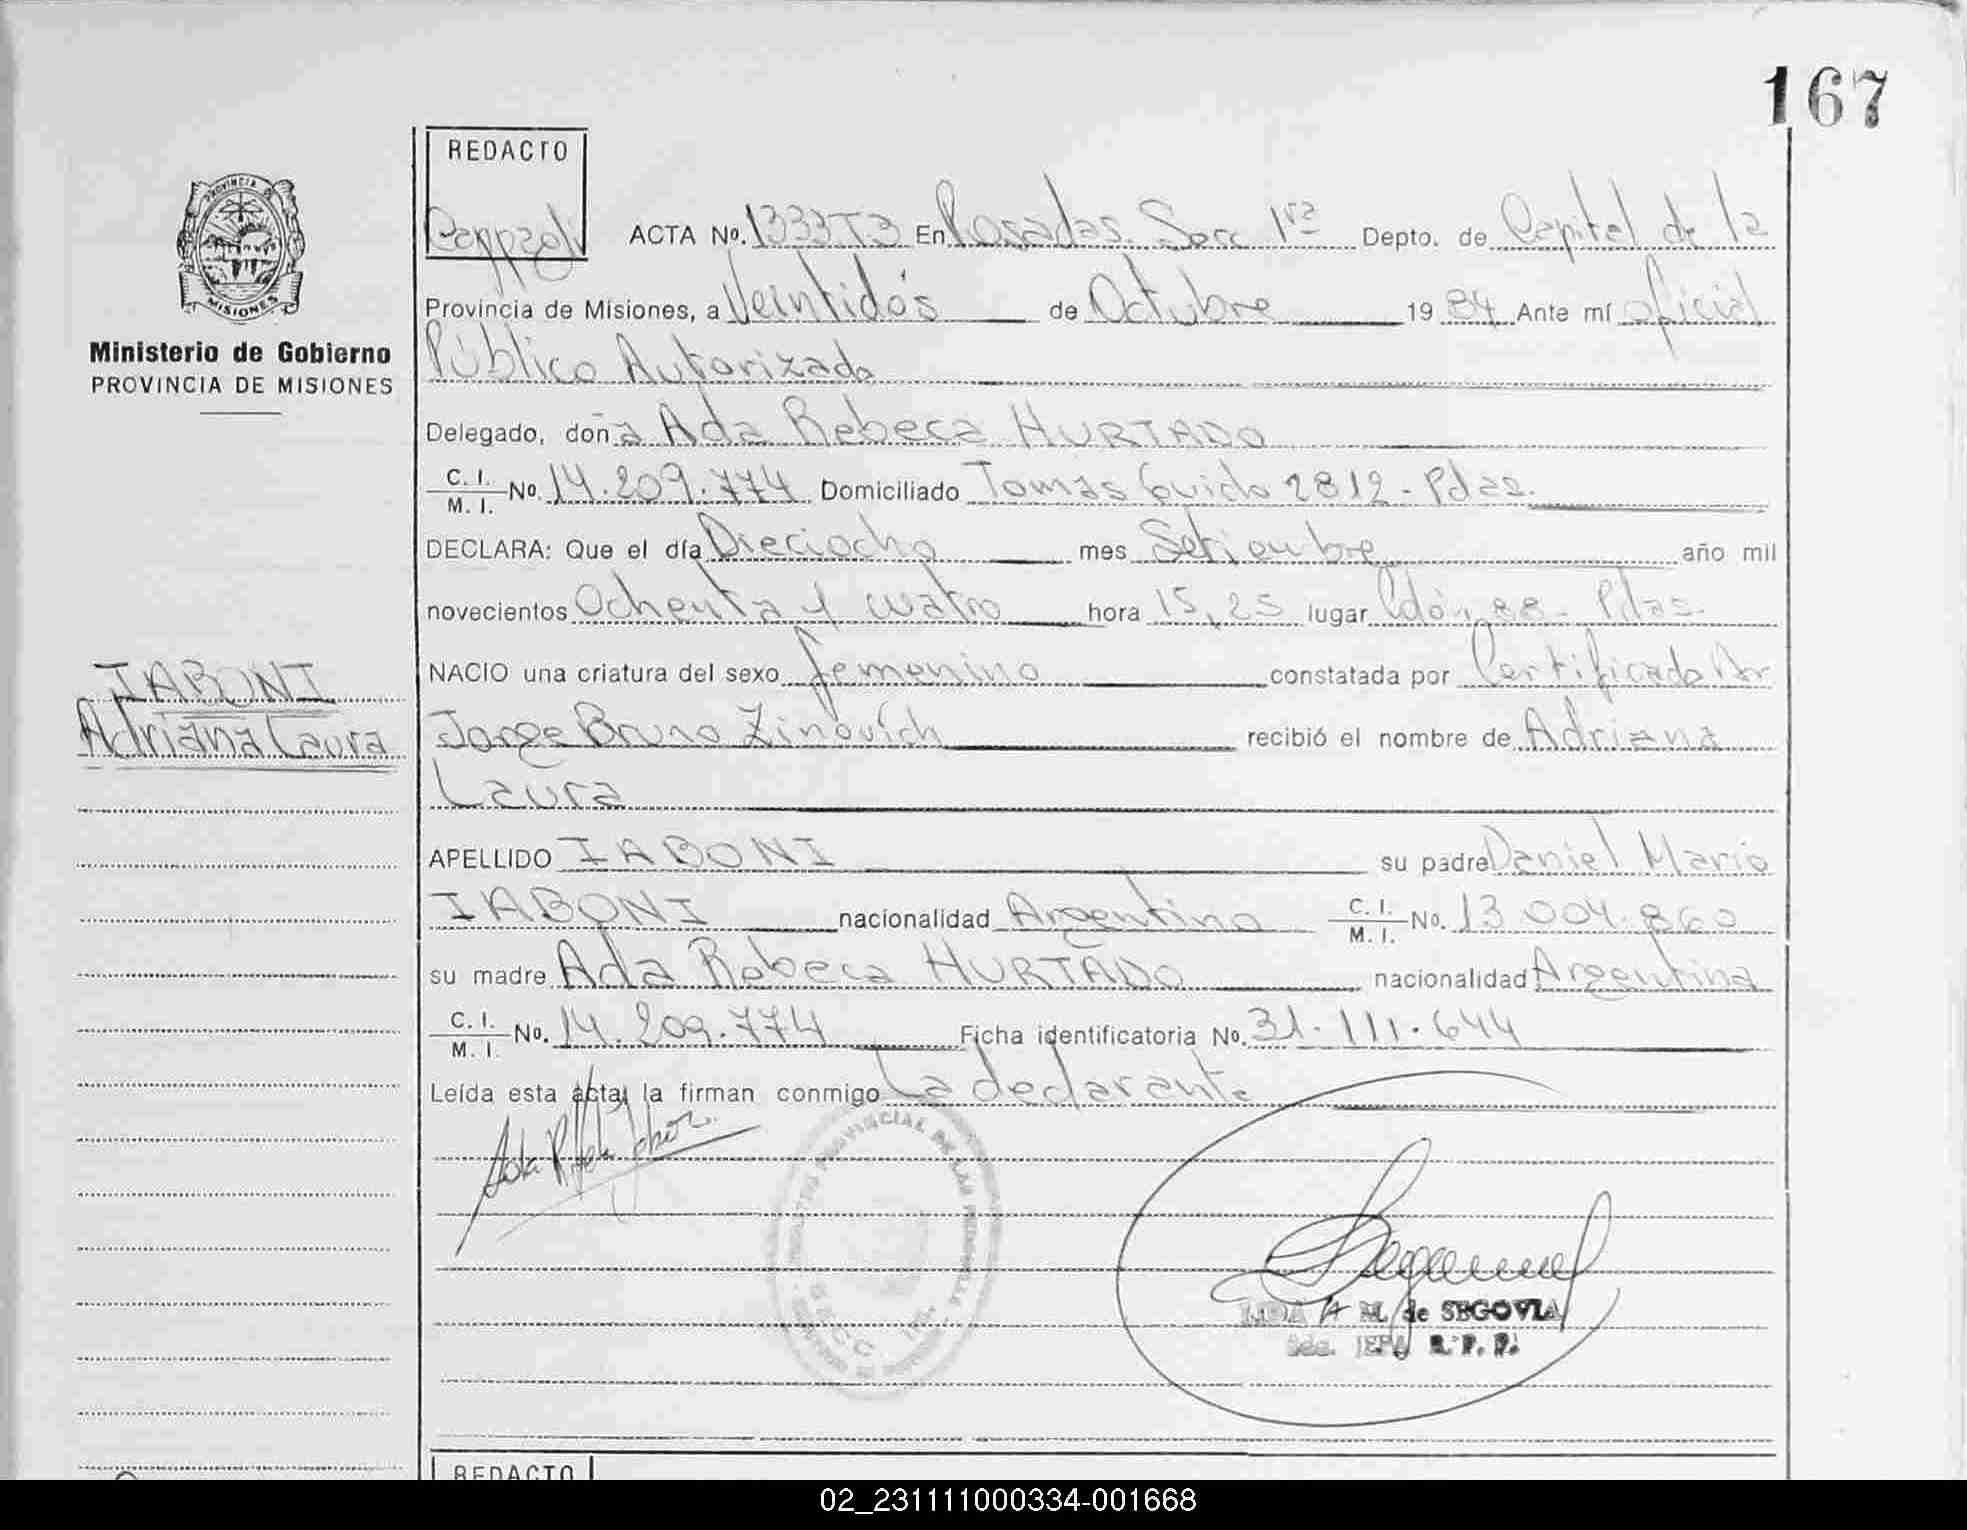 167
REDACTO
ACTA Nº. 1333T3 En Posadas. Secc 1ra Depto. de Capital de la
Provincia de Misiones, a Veintidós de Octubre 1984 Ante mí oficial
Público Autorizado
Delegado, doña Ada Rebeca HURTADO
C. I.
M. I. Nº. 14.209.774 Domiciliado Tomás Guido 2812 - Pdas.
DECLARA: Que el día Dieciocho mes Setiembre año mil
novecientos Ochenta y cuatro hora 15,25 lugar Colón, 88 - Pdas.
NACIO una criatura del sexo femenino constatada por Certificado Dr
Jorge Bruno Zinovich recibió el nombre de Adriana
Laura
APELLIDO IABONI su padre Daniel Mario
IABONI nacionalidad Argentino C. I.
M. I. Nº. 13.004.860
su madre Ada Rebeca HURTADO nacionalidad Argentina
C. I.
M. I. Nº. 14.209.774 Ficha identificatoria Nº. 31.111.644
Leída esta acta, la firman conmigo La declarante
MISIONES
Ministerio de Gobierno
PROVINCIA DE MISIONES
IABONI
Adriana Laura
REGISTRO PROVINCIAL DE LAS PERSONAS
SECC.
A M. de SEGOVIA
JEFA R. P. P.
REDACTO
02_231111000334-001668